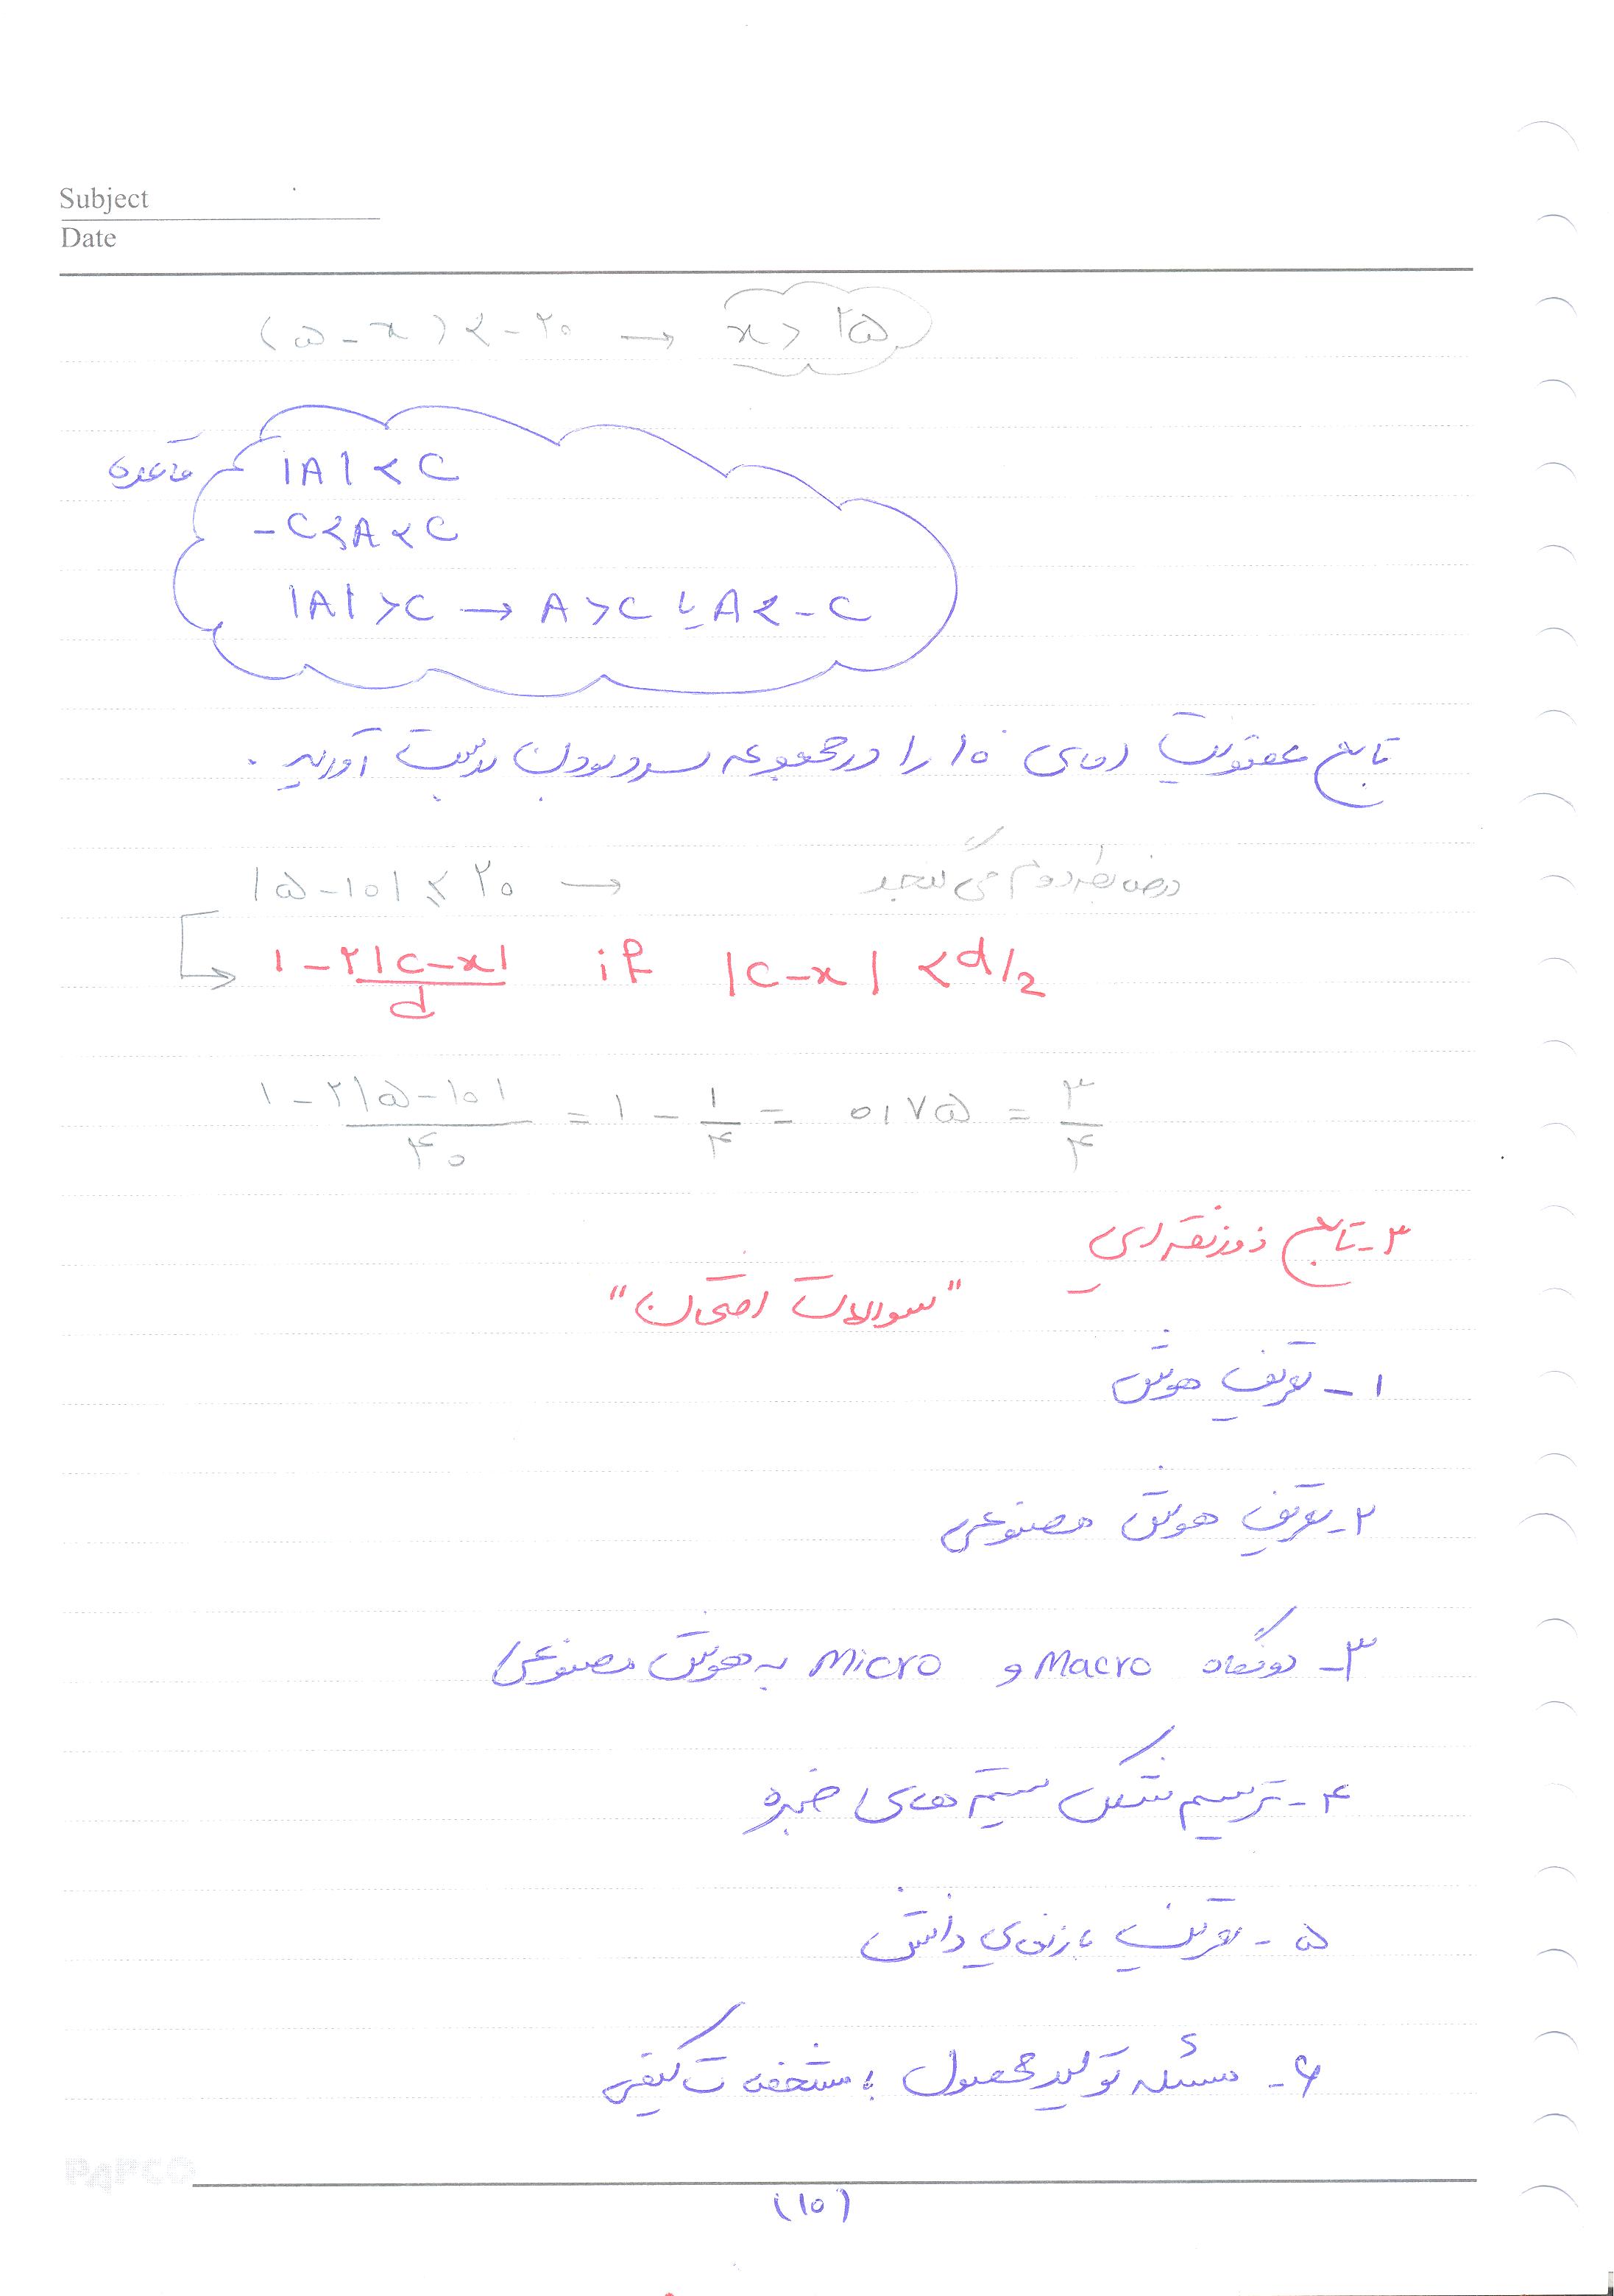 Subject
Date
(۵-x) < -۲۰ → x > ۲۵
قاعده
|A| < C
-C < A < C
|A| > C → A > C یا A < -C
تابع عضویت دمای ۱۰° را در مجموعه سرد بودن بدست آورید.
|۵-۱۰| ≤ ۲۰ → در ضابطه دوم می گنجد
۱ - ۲|c-x| / d if |c-x| < d/2
۱ - ۲|۵-۱۰| / ۴۰ = ۱ - ۱/۴ = ۰/۷۵ = ۳/۴
۳- تابع ذوزنقه ای
"سوالات امتحان"
۱- تعریف هوش
۲- تعریف هوش مصنوعی
۳- دو نگاه Macro و Micro به هوش مصنوعی
۴- ترسیم شکل سیستم های خبره
۵- تعریف بازنمایی دانش
۶- مسئله تولید محصول با مشخصات کیفی
PAPCO
(۱۰)